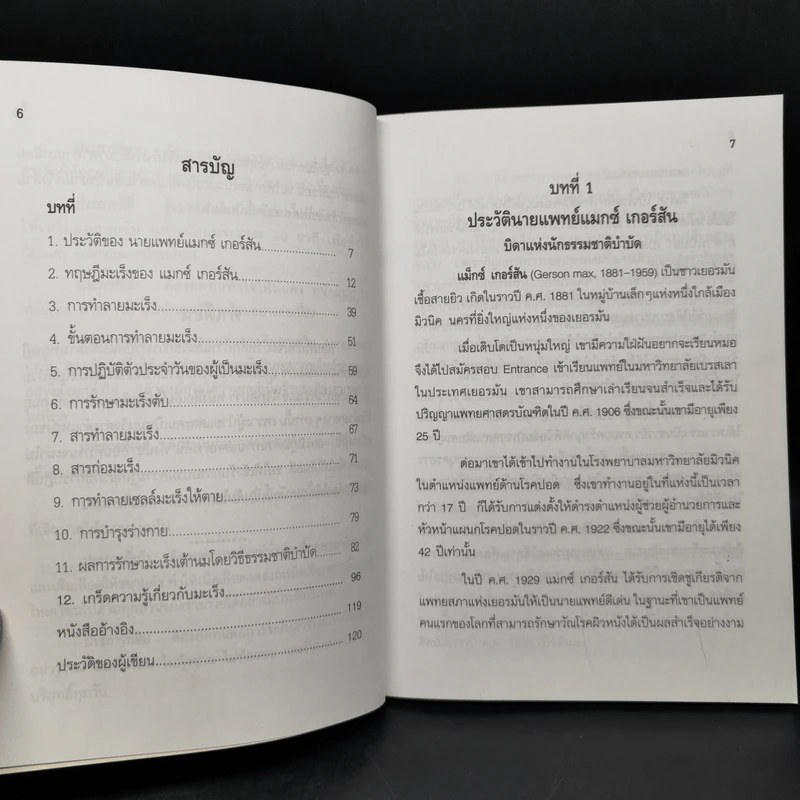 6
สารบัญ
บทที่
1. ประวัติของ นายแพทย์แมกซ์ เกอร์สัน 7
2. ทฤษฎีมะเร็งของ แมกซ์ เกอร์สัน 12
3. การทำลายมะเร็ง 39
4. ขั้นตอนการทำลายมะเร็ง 51
5. การปฏิบัติตัวประจำวันของผู้เป็นมะเร็ง 59
6. การรักษามะเร็งตับ 64
7. สารทำลายมะเร็ง 67
8. สารก่อมะเร็ง 71
9. การทำลายเซลล์มะเร็งให้ตาย 73
10. การบำรุงร่างกาย 79
11. ผลการรักษามะเร็งเต้านมโดยวิธีธรรมชาติบำบัด 82
12. เกร็ดความรู้เกี่ยวกับมะเร็ง 96
หนังสืออ้างอิง 119
ประวัติของผู้เขียน 120
7
บทที่ 1
ประวัตินายแพทย์แมกซ์ เกอร์สัน
บิดาแห่งนักธรรมชาติบำบัด
แม็กซ์ เกอร์สัน (Gerson max, 1881-1959) เป็นชาวเยอรมัน
เชื้อสายยิว เกิดในราวปี ค.ศ. 1881 ในหมู่บ้านเล็กๆแห่งหนึ่งใกล้เมือง
มิวนิค นครที่ยิ่งใหญ่แห่งหนึ่งของเยอรมัน
เมื่อเติบโตเป็นหนุ่มใหญ่ เขามีความใฝ่ฝันอยากจะเรียนหมอ
จึงได้ไปสมัครสอบ Entrance เข้าเรียนแพทย์ในมหาวิทยาลัยเบรสเลา
ในประเทศเยอรมัน เขาสามารถศึกษาเล่าเรียนจนสำเร็จและได้รับ
ปริญญาแพทยศาสตรบัณฑิตในปี ค.ศ. 1906 ซึ่งขณะนั้นเขามีอายุเพียง
25 ปี
ต่อมาเขาได้เข้าไปทำงานในโรงพยาบาลมหาวิทยาลัยมิวนิค
ในตำแหน่งแพทย์ด้านโรคปอด ซึ่งเขาทำงานอยู่ในที่แห่งนี้เป็นเวลา
กว่า 17 ปี ก็ได้รับการแต่งตั้งให้ดำรงตำแหน่งผู้ช่วยผู้อำนวยการและ
หัวหน้าแผนกโรคปอดในราวปี ค.ศ. 1922 ซึ่งขณะนั้นเขามีอายุได้เพียง
42 ปีเท่านั้น
ในปี ค.ศ. 1929 แมกซ์ เกอร์สัน ได้รับการเชิดชูเกียรติจาก
แพทยสภาแห่งเยอรมันให้เป็นนายแพทย์ดีเด่น ในฐานะที่เขาเป็นแพทย์
คนแรกของโลกที่สามารถรักษาวัณโรคผิวหนังได้เป็นผลสำเร็จอย่างงดงาม